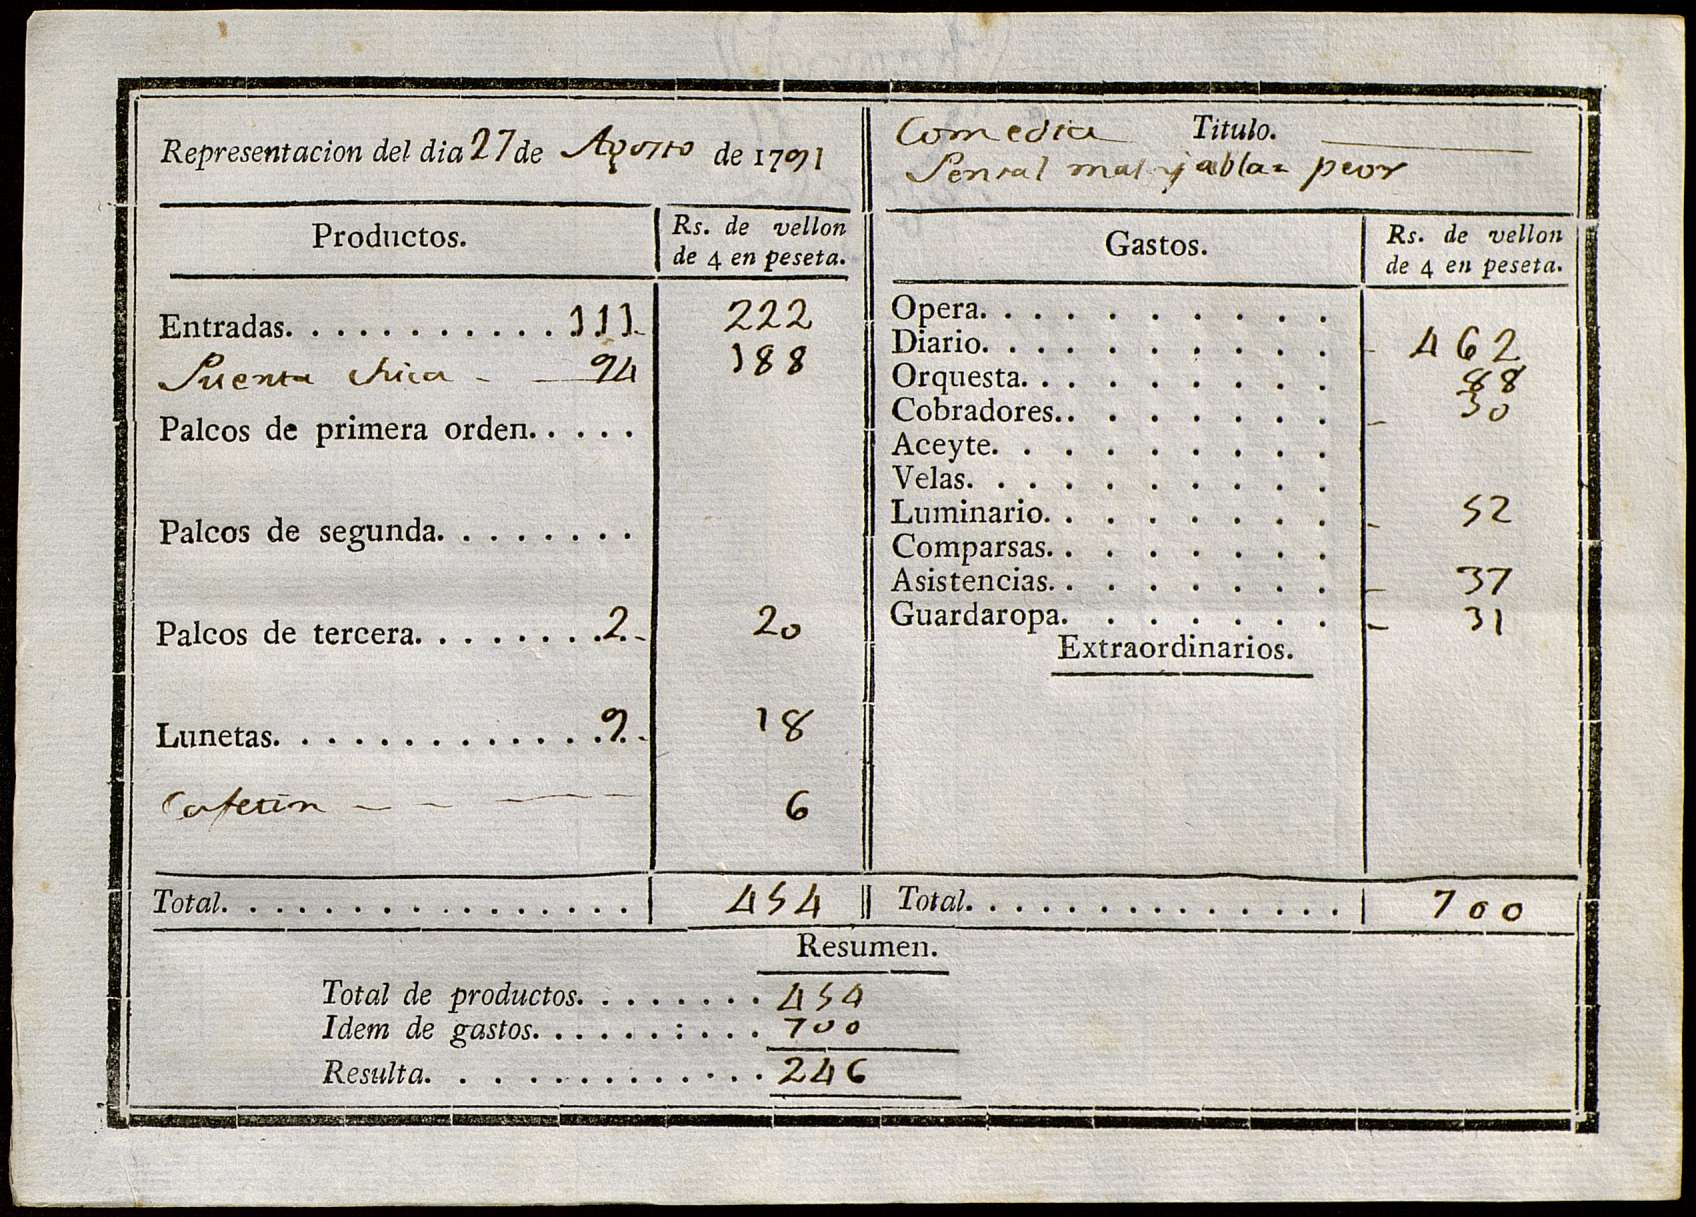 Representacion del dia 27 de Agosto de 1791
Comedia Titulo.
Pensal mal y ablar peor
Productos. Rs. de vellon de 4 en peseta.
Entradas. . . . . . . . . . . 111 222
Puerta chica - 94 188
Palcos de primera orden. . . . .
Palcos de segunda. . . . . . . .
Palcos de tercera. . . . . . . . 2 20
Lunetas. . . . . . . . . . . . . 9 18
Cafetin - - - 6
Total. . . . . . . . . . . . . . . . 454
Gastos. Rs. de vellon de 4 en peseta.
Opera. . . . . . . . . .
Diario. . . . . . . . . . 462
Orquesta. . . . . . . . . 88
Cobradores. . . . . . . . 30
Aceyte. . . . . . . . .
Velas. . . . . . . . . .
Luminario. . . . . . . . 52
Comparsas. . . . . . . .
Asistencias. . . . . . . . 37
Guardaropa. . . . . . . 31
Extraordinarios.
Total. . . . . . . . . . . . . . . 700
Resumen.
Total de productos. . . . . . . . 454
Idem de gastos. . . . . . : . . . 700
Resulta. . . . . . . . . . . . . . 246